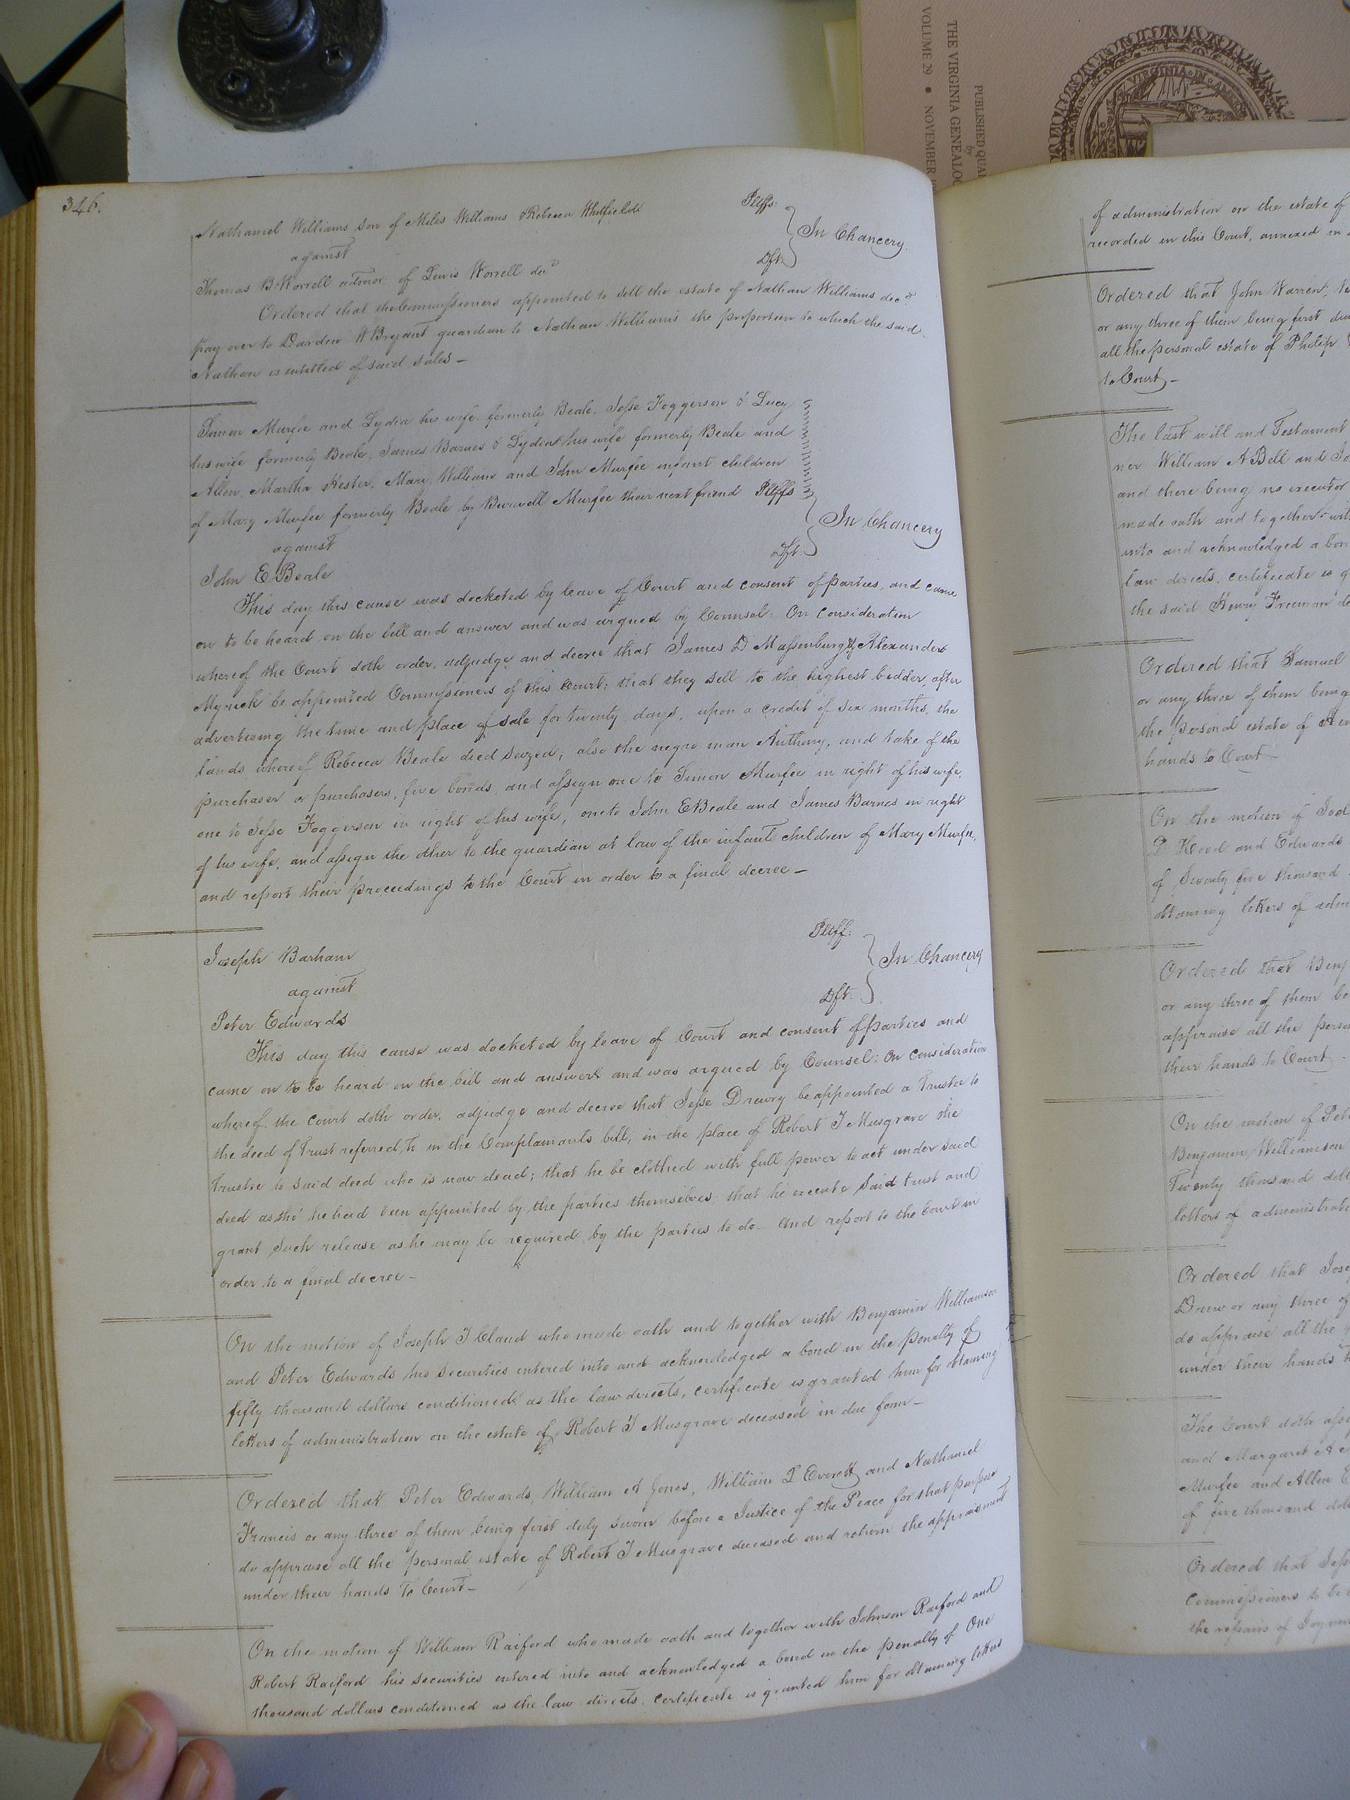 PUBLISHED QUA
by
THE VIRGINIA GENEALOG
VOLUME 29 • NOVEMBER
VIRGINIA IN
346.
Nathaniel Williams son of Miles Williams & Rebecca Whitfield Pltffs.
against In Chancery
Thomas B Worrell admor. of Lewis Worrell decd Dft.
Ordered that the Commissioners appointed to sell the estate of Nathan Williams decd
pay over to Darden W Bryant guardian to Nathan Williams the proportion to which the said
Nathan is entitled of said sales—
Simon Murfee and Lydia his wife formerly Beale, Jesse Foggerson & Lucy
his wife formerly Beale, James Barnes & Lydia his wife formerly Beale and
Allen, Martha Hester, Mary, William and John Murfee infant children
of Mary Murfee formerly Beale by Burwell Murfee their next friend Pltffs
against In Chancery
John E Beale Dft.
This day this cause was docketed by leave of Court and consent of parties, and came
on to be heard on the bill and answer and was argued by Counsel: On consideration
whereof the Court doth order, adjudge and decree that James D Massenburg & Alexander
Myrick be appointed Commissioners of this Court; that they sell to the highest bidder, after
advertising the time and place of sale for twenty days, upon a credit of six months, the
lands whereof Rebecca Beale died seized; also the negro man Anthony, and take of the
purchaser or purchasers, five bonds and assign one to Simon Murfee in right of his wife,
one to Jesse Foggerson in right of his wife, one to John E Beale and James Barnes in right
of his wife, and assign the other to the guardian at law of the infant children of Mary Murfee,
and report their proceedings to the Court in order to a final decree—
Joseph Barham Pltff.
against In Chancery
Peter Edwards Dft.
This day this cause was docketed by leave of Court and consent of parties and
came on to be heard on the bill and answer and was argued by Counsel: On consideration
whereof the Court doth order, adjudge and decree that Jesse Drewry be appointed a trustee to
the deed of trust referred to in the Complainants bill, in the place of Robert T Musgrave the
trustee to said deed who is now dead; that he be clothed with full power to act under said
deed as tho' he had been appointed by the parties themselves; that he execute said trust and
grant such release as he may be required by the parties to do. And report to the Court in
order to a final decree—
On the motion of Joseph T Claud who made oath and together with Benjamin Williamson
and Peter Edwards his securities entered into and acknowledged a bond in the penalty of
fifty thousand dollars conditioned as the law directs, certificate is granted him for obtaining
letters of administration on the estate of Robert T Musgrave deceased in due form—
Ordered that Peter Edwards, William A Jones, William L Everett and Nathaniel
Francis or any three of them being first duly sworn before a Justice of the Peace for that purpose
do appraise all the personal estate of Robert T Musgrave deceased and return the appraisement
under their hands to Court—
On the motion of William Raiford who made oath and together with Johnson Raiford and
Robert Raiford his securities entered into and acknowledged a bond in the penalty of One
thousand dollars conditioned as the law directs, certificate is granted him for obtaining letters
of administration on the estate of
recorded in this Court, annexed in
Ordered that John Warren,
or any three of them being first du
all the personal estate of Philip
to Court—
The last will and Testament
ner William A Bell and
and there being no executor
made oath and together with
into and acknowledged a bon
law directs, certificate is g
the said Henry Freeman de
Ordered that Samuel
or any three of them being
the personal estate of
hands to Court—
On the motion of
D Hood and Edwards
of Seventy five thousand
obtaining letters of adm
Ordered that Benj
or any three of them be
appraise all the perso
their hands to Court.
On the motion of Pet
Benjamin Williamson
Twenty thousand doll
letters of administrati
Ordered that Jose
Drew or any three of
do appraise all the
under their hands
The Court doth
and Margaret
Murfee and Allen
of five thousand dol
Ordered that
Commissioners to
the repairs of